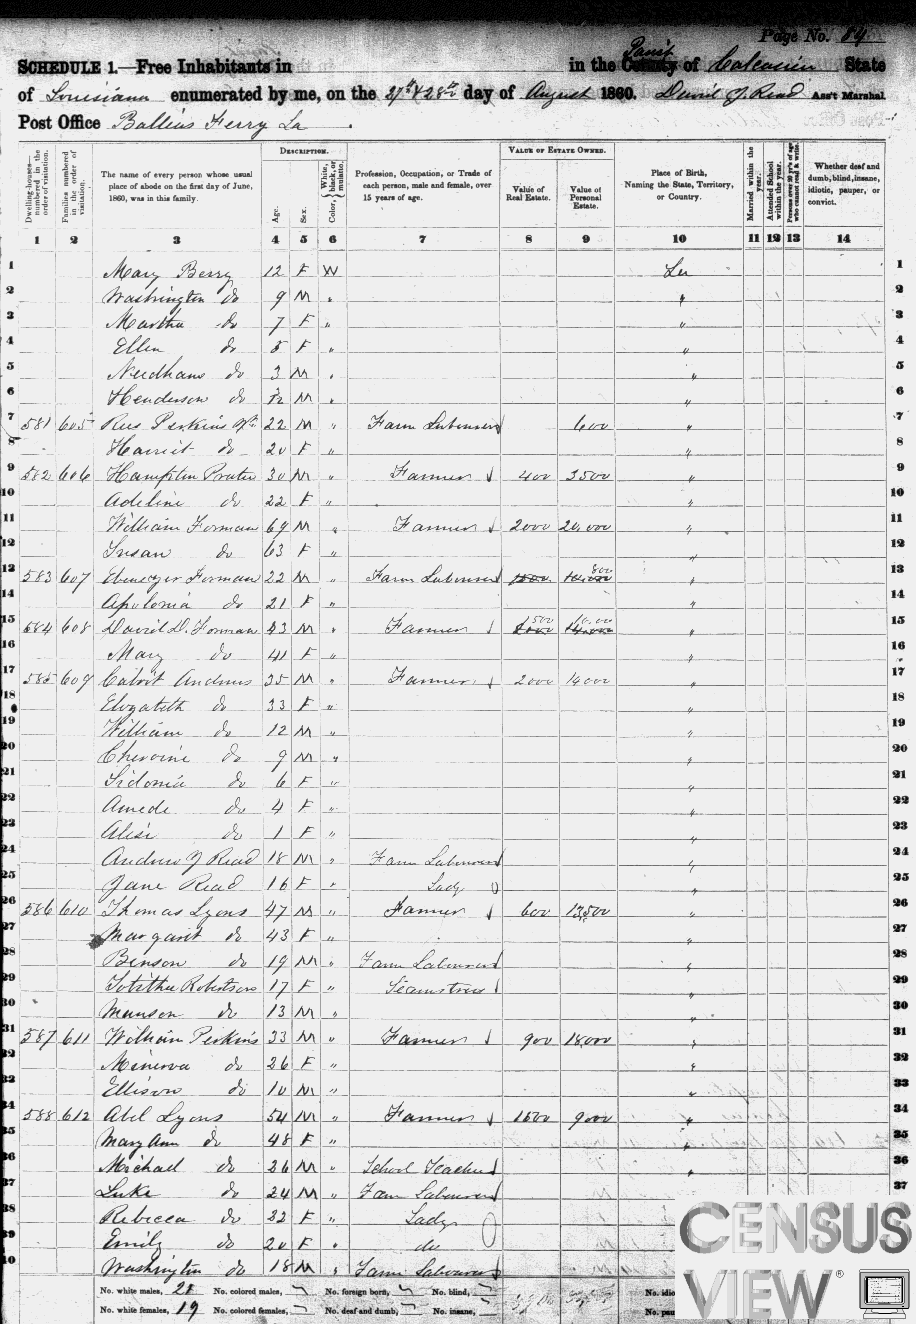 Page No. 84
SCHEDULE 1.—Free Inhabitants in in the County of Calcasieu State
of Louisiana enumerated by me, on the 27th & 28th day of August 1860. David J. Read Ass't Marshal.
Post Office Ballews Ferry La
DESCRIPTION. VALUE OF ESTATE OWNED.
Dwelling-houses—numbered in the order of visitation. Families numbered in the order of visitation. The name of every person whose usual place of abode on the first day of June, 1860, was in this family. Age. Sex. Color, White, black, or mulatto. Profession, Occupation, or Trade of each person, male and female, over 15 years of age. Value of Real Estate. Value of Personal Estate. Place of Birth, Naming the State, Territory, or Country. Married within the year. Attended School within the year. Persons over 20 y'rs of age who cannot read & write. Whether deaf and dumb, blind, insane, idiotic, pauper, or convict.
1 2 3 4 5 6 7 8 9 10 11 12 13 14
1 Mary Berry 12 F W La 1
2 Washington do 9 M " " 2
3 Martha do 7 F " " 3
4 Ellen do 5 F " " 4
5 Needham do 3 M " " 5
6 Henderson do M " " 6
7 581 605 Rees Perkins 22 M " Farm Labourer 600 " 7
8 Harriet do 20 F " " 8
9 582 606 Hampton Prater 30 M " Farmer 400 3500 " 9
10 Adeline do 22 F " " 10
11 William Forman 69 M " Farmer 2000 20,000 " 11
12 Susan do 63 F " " 12
13 583 607 Ebenezer Forman 22 M " Farm Labourer 800 " 13
14 Apolonia do 21 F " " 14
15 584 608 David D. Forman 43 M " Farmer 1500 10,000 " 15
16 Mary do 41 F " " 16
17 585 609 Calvit Andrus 35 M " Farmer 2000 14000 " 17
18 Elizabeth do 33 F " " 18
19 William do 12 M " " 19
20 Cheroine do 9 M " " 20
21 Sidonia do 6 F " " 21
22 Amede do 4 F " " 22
23 Alisi do 1 F " " 23
24 Andrew J Read 18 M " Farm Labourer " 24
25 Jane Read 16 F " Lady " 25
26 586 610 Thomas Lyons 47 M " Farmer 600 " 26
27 Margaret do 43 F " " 27
28 Benson do 19 M " Farm Labourer " 28
29 Robertson 17 F " Seamstress " 29
30 Manson do 13 M " " 30
31 587 611 William Perkins 33 M " Farmer 900 18,000 " 31
32 Minerva do 26 F " " 32
33 Ellison do 10 M " " 33
34 588 612 Abel Lyons 54 M " Farmer 1500 9000 " 34
35 Mary Ann do 48 F " " 35
36 Michael do 26 M " School Teacher " 36
37 Luke do 24 M " Farm Labourer 37
38 Rebecca do 22 F " Lady
39 Emily do 20 F " do
40 Washington do 18 M " Farm Labourer
No. white males, 21 No. colored males, No. foreign born, No. blind,
No. white females, 19 No. colored females, No. deaf and dumb, No. insane,
CENSUS
VIEW®